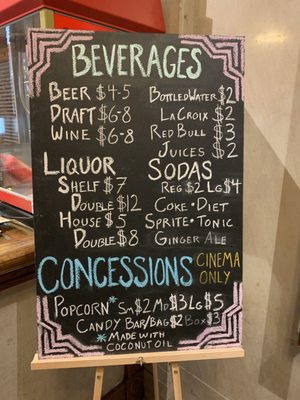 BEVERAGES
BEER $4-5
DRAFT $6-8
WINE $6-8
BOTTLED WATER $2
LACROIX $2
RED BULL $3
JUICES $2
LIQUOR
SHELF $7
DOUBLE $12
HOUSE $5
DOUBLE $8
SODAS
REG $2 LG $4
COKE • DIET
SPRITE • TONIC
GINGER ALE
CONCESSIONS CINEMA ONLY
POPCORN* SM $2 MD $3 LG $5
CANDY BAR/BAG $2 BOX $3
*MADE WITH
COCONUT OIL